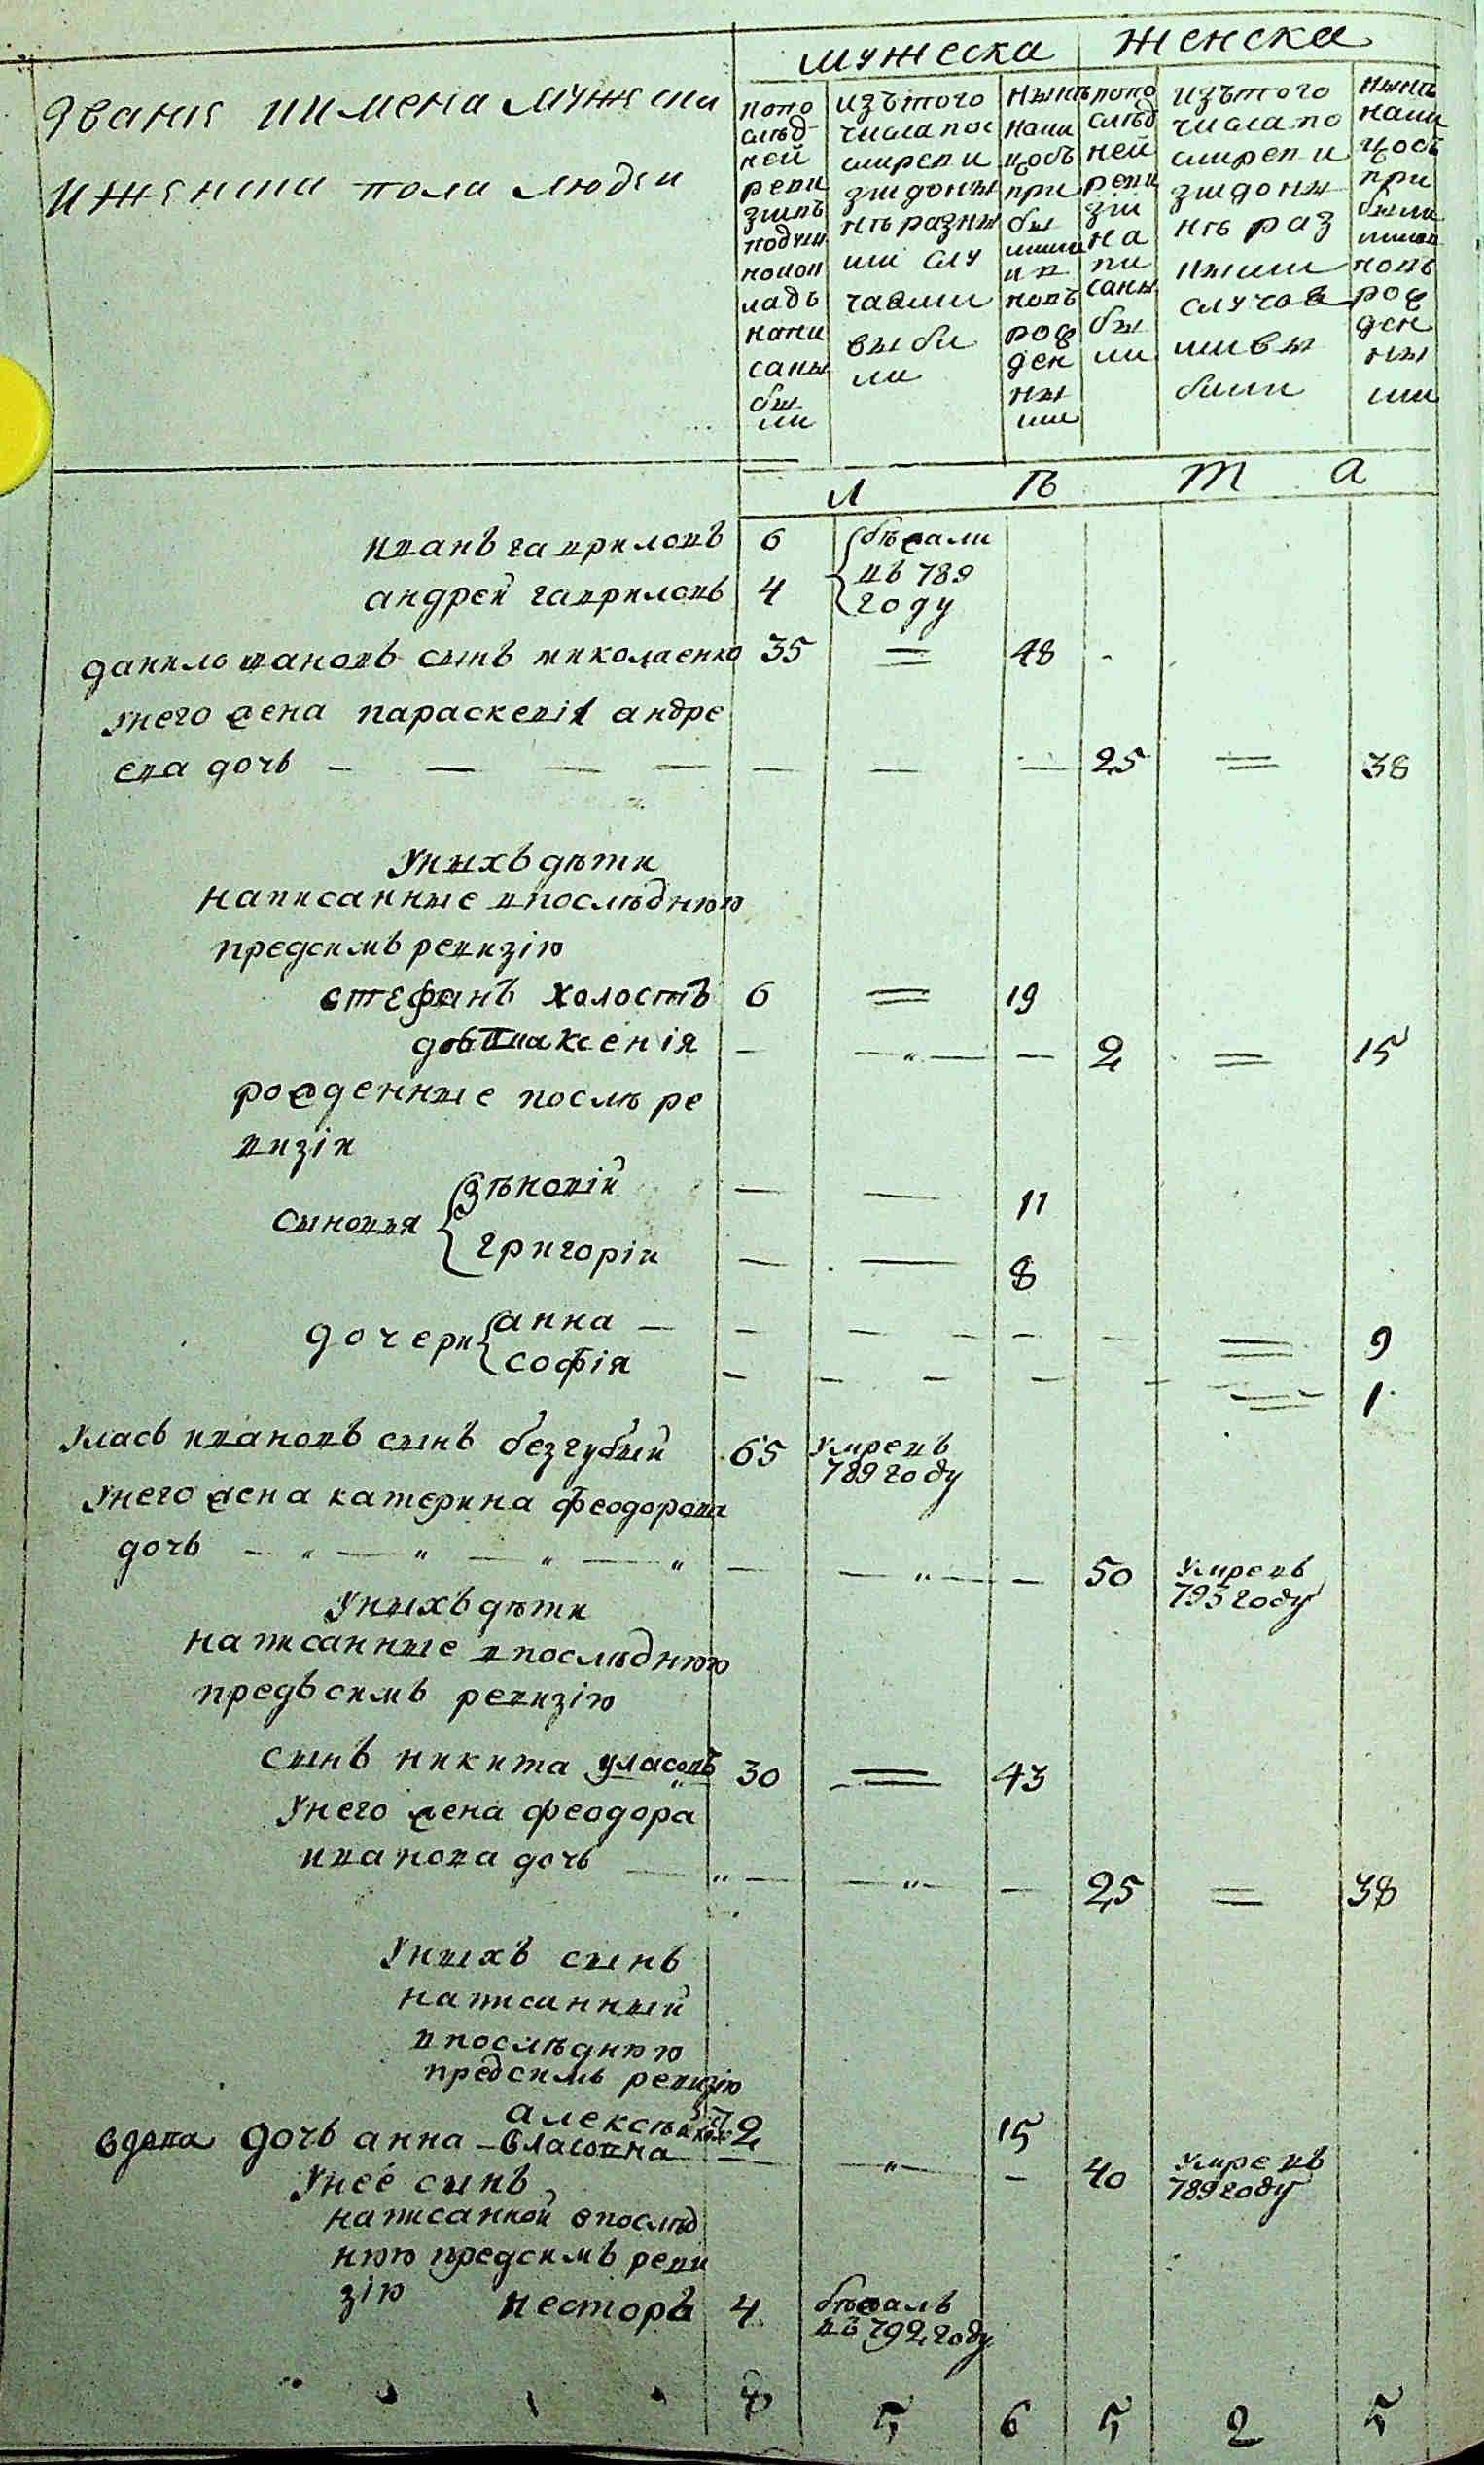 мужеска женска
Званія иимена мужеска
иженска пола людеи
попо
слѣд
ней
реви
зіивъ
подуш
номок
ладѣ
напи
саны
бы
ли
изътого
числа пос
лиреви
зіидоны
нѣ разны
ми слу
чаями
выбы
ли
нынѣ
нали
цобъ
при
бы
лыми
ив
новь
рож
ден
ны
ми
попо
слѣд
ней
реви
зіи
на
пи
саны
бы
ли
изътого
числа по
слиреви
зіидоны
нѣ раз
ными
случая
мивы
были
нынѣ
нали
цобъ
при
былы
новь
рож
ден
ны
ми
л ѣ т а
иванъ гавриловъ 6 бѣжали
въ 789
году
андрей гавриловъ 4
данило ивановъ сынъ миколаенко 35 = 48
унего жена параскевія андре
ева дочь — — — — — — — 25 = 38
Унихъ дѣти
написанные впослѣднюю
предсимъ ревизію
стефанъ холостъ 6 = 19
дочь ксенія — — „ — — 2 = 15
рожденные послѣ ре
визіи
сыновья
зѣновій — — 11
григоріи — — 8
дочери
анна — — — — — — = 9
софія — — — — — = 1
Уласъ ивановъ сынъ безгубый 65 Умревъ
789 году
Унего жена катерина феодорова
дочь — „ — „ — „ — „ — — „ — — 50 Умревъ
793 году
Унихъ дѣти
написанные впослѣднюю
предъсимъ ревизію
сынъ никита уласовъ 30 = 43
Унего жена феодора
иванова дочь — „ — — „ — — 25 = 38
Унихъ сынъ
написанный
впослѣднюю
предсимъ ревизію
алексѣй 2 15
вдова дочь анна — власовна — — „ — — 40 Умревъ
789 году
Унеё сынъ
написанной впослѣд
нюю предсимъ реви
зію
несторъ 4 бѣжалъ
въ 792 году
5 6 5 2 5